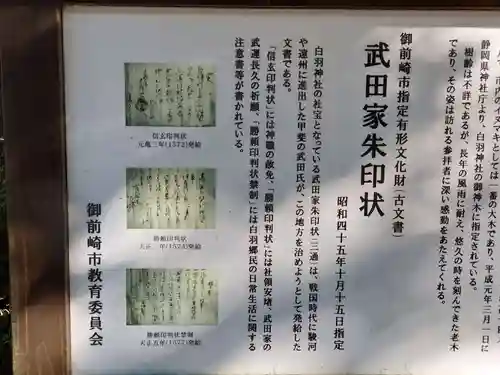 市内イヌマキとしては一番の大木であり、平成元年三月一日に
静岡県神社庁より、白羽神社の御神木に指定されている。
樹齢は不詳であるが、長年の風雨に耐え、悠久の時を刻んできた老木
であり、その姿は訪れる参拝者に深い感動をあたえてくれる。
御前崎市指定有形文化財(古文書)
武田家朱印状
昭和四十五年十月十五日指定
白羽神社の社宝となっている武田家朱印状(三通)は、戦国時代に駿河
や遠州に進出した甲斐の武田氏が、この地方を治めようとして発給した
文書である。
「信玄印判状」には神職の赦免、「勝頼印判状」には社領安堵、武田家の
武運長久の祈願、「勝頼印判状禁制」には白羽郷民の日常生活に関する
注意書等が書かれている。
信玄印判状
元亀三年(1572)発給
勝頼印判状
天正 年(157)発給
勝頼印判状禁制
天正五年(1577)発給
御前崎市教育委員会